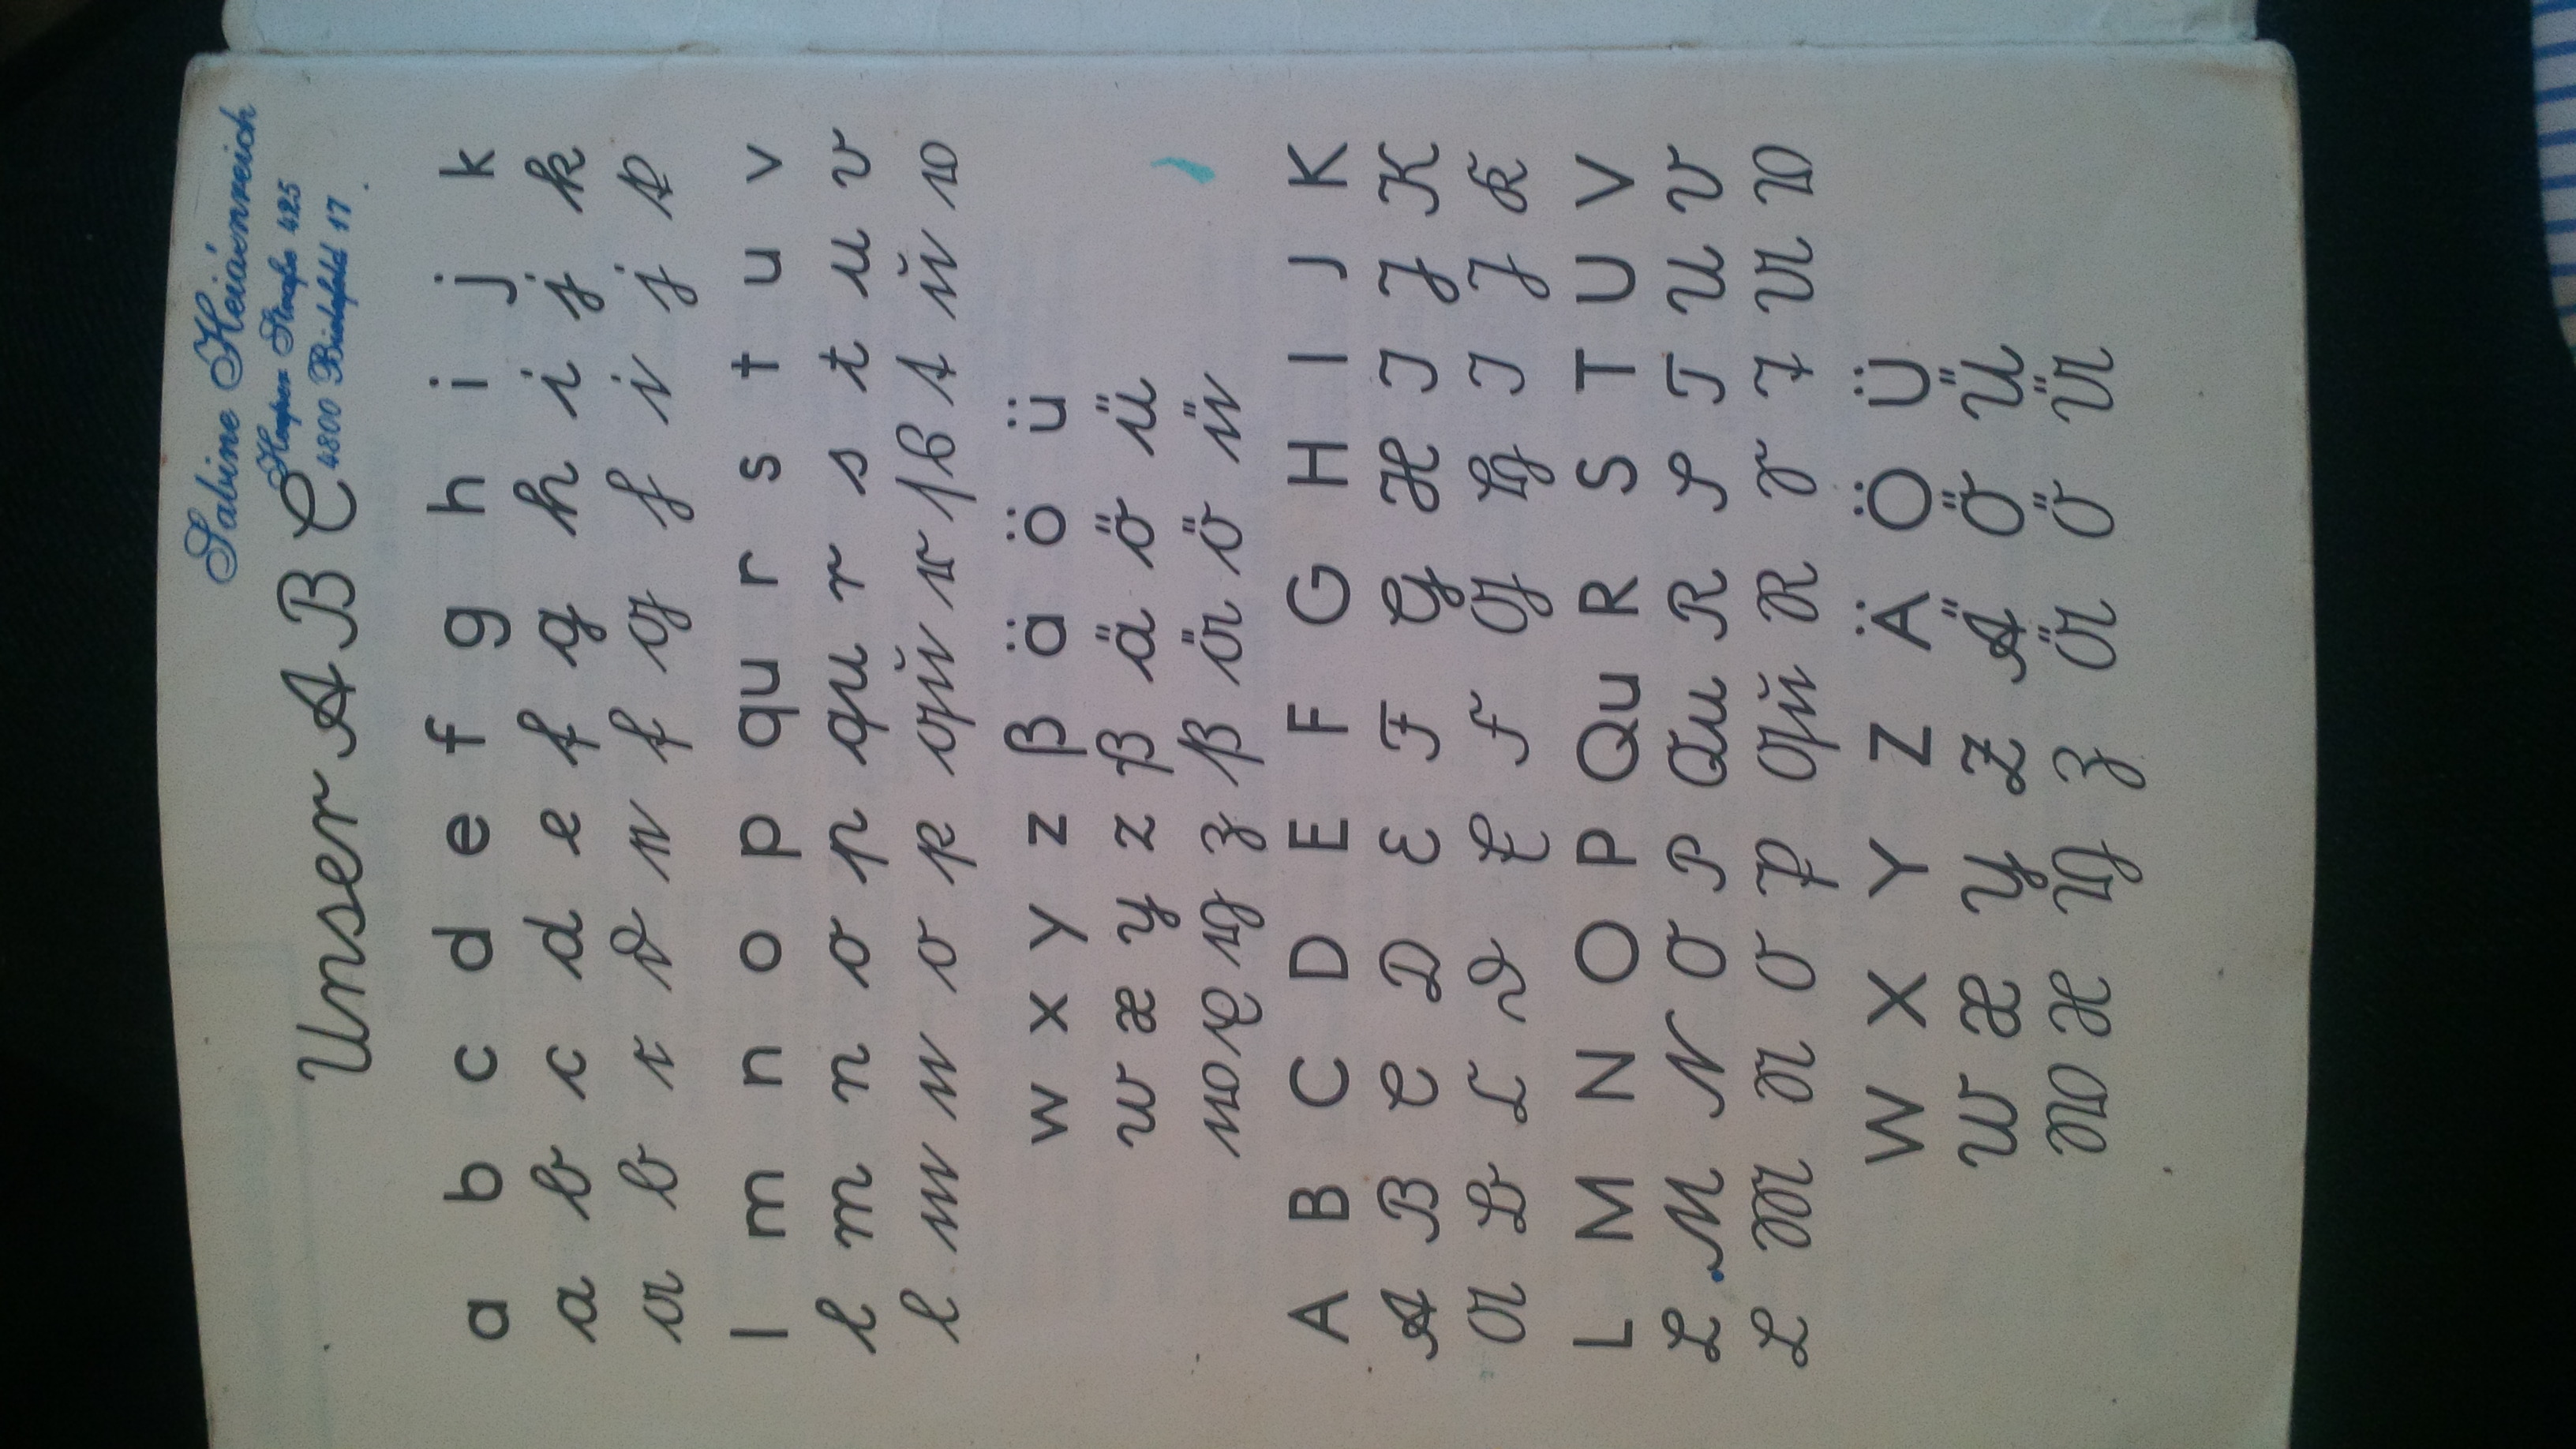 Sabine Heidenreich
Heeper Straße 425
4800 Bielefeld 17
Unser A B C
a b c d e f g h i j k
a b c d e f g h i j k
a b c d e f g h i j k
l m n o p qu r s t u v
l m n o p qu r s t u v
l m n o p qu r s ß t u v
w x y z β ä ö ü
w x y z ß ä ö ü
w x y z ß ä ö ü
A B C D E F G H I J K
A B C D E F G H I J K
A B C D E F G H I J K
L M N O P Qu R S T U V
L M N O P Qu R S T U V
L M N O P Qu R S T U V
W X Y Z Ä Ö Ü
W X Y Z Ä Ö Ü
W X Y Z Ä Ö Ü